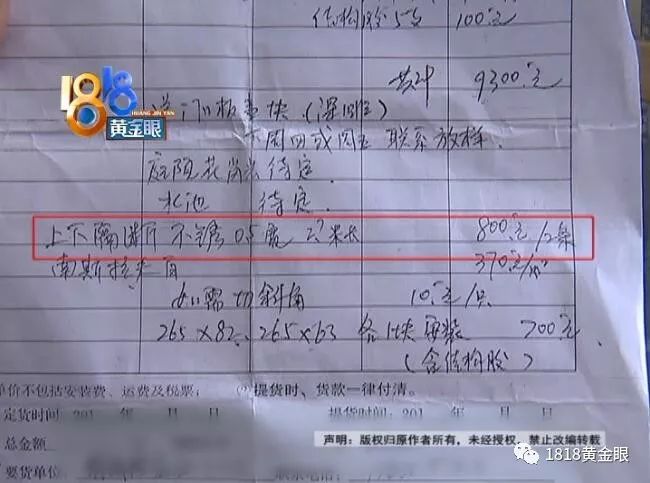 结构胶5支 100元
共计 9300元
1818
HUANG JIN YAN
黄金眼
下周四或周五 联系放样.
庭院花岗岩待定
水池 待定
上下隔断 不锈 0.5宽 2.7米长 800元/2条
南斯拉夫白 370元/m²
如需切斜角 10元/只
265×82、265×63 各1块 再装 700元
(含结构胶)
单价不包括安装费、运费及税票; 提货时、货款一律付清。
定货时间:201 年 月 日 提货时间:201 年 月 日
总金额
要货单位: 联系电话:
声明:版权归原作者所有,未经授权,禁止改编转载
1818黄金眼